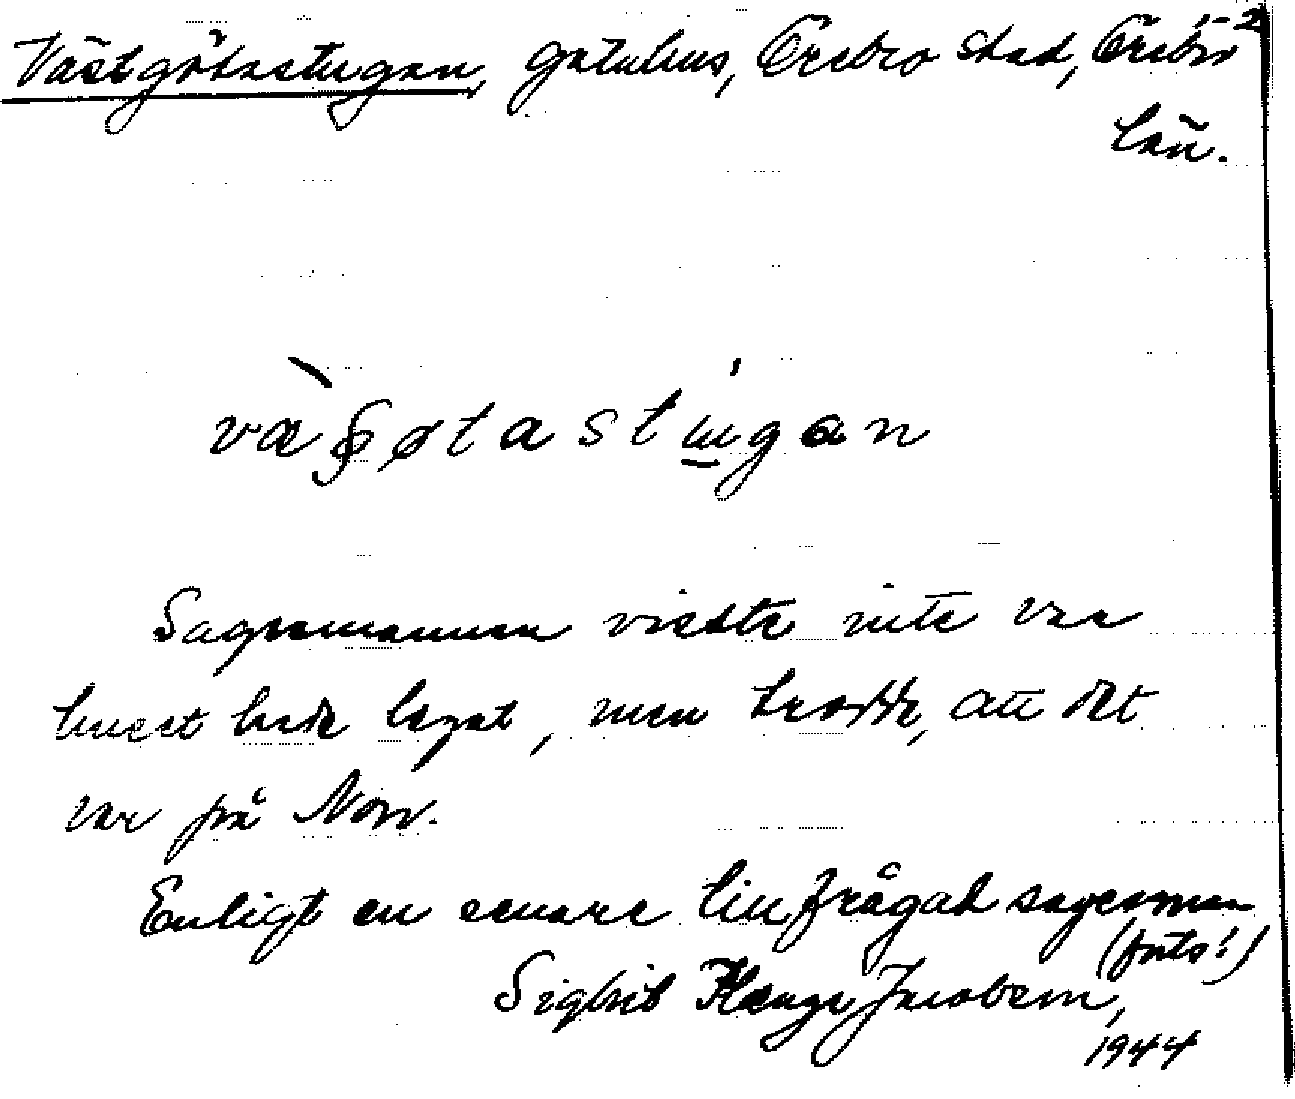 1-2
Västgötastugan, gatuhus, Örebro stad, Örebro
län.
væʂøtastugan
Sagesmannen visste inte var
huset hade legat, men trodde, att det
var på Norr.
Enligt en senare tillfrågad sagesman
(forts!)
Sigbrit Jacobson,
1944